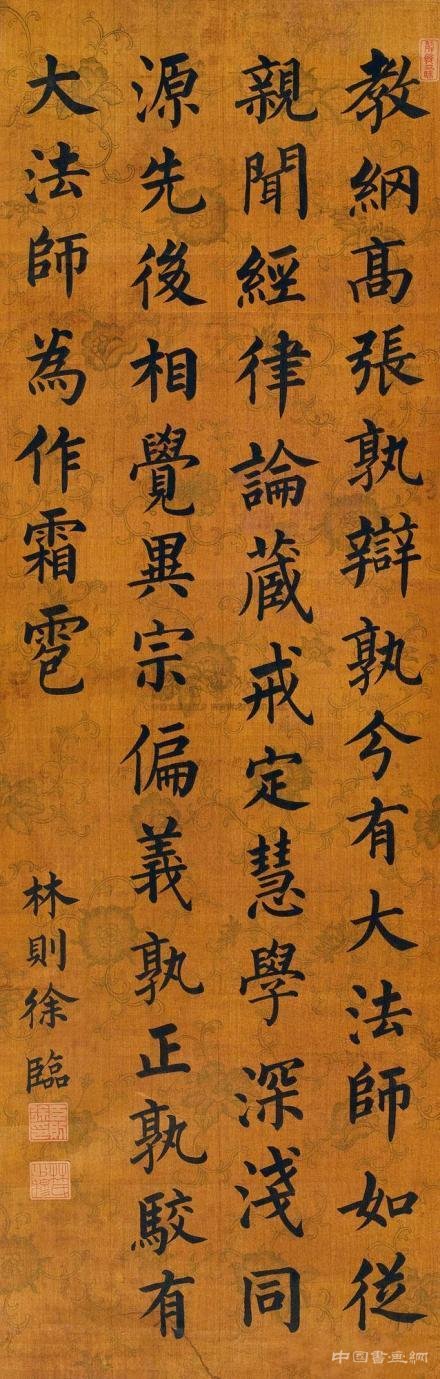 教網髙張孰辯孰分有大法師如從
親聞經律論藏戒定慧學深淺同
源先後相覺異宗偏義孰正孰駮有
大法師為作霜雹
林則徐臨
中国書画網